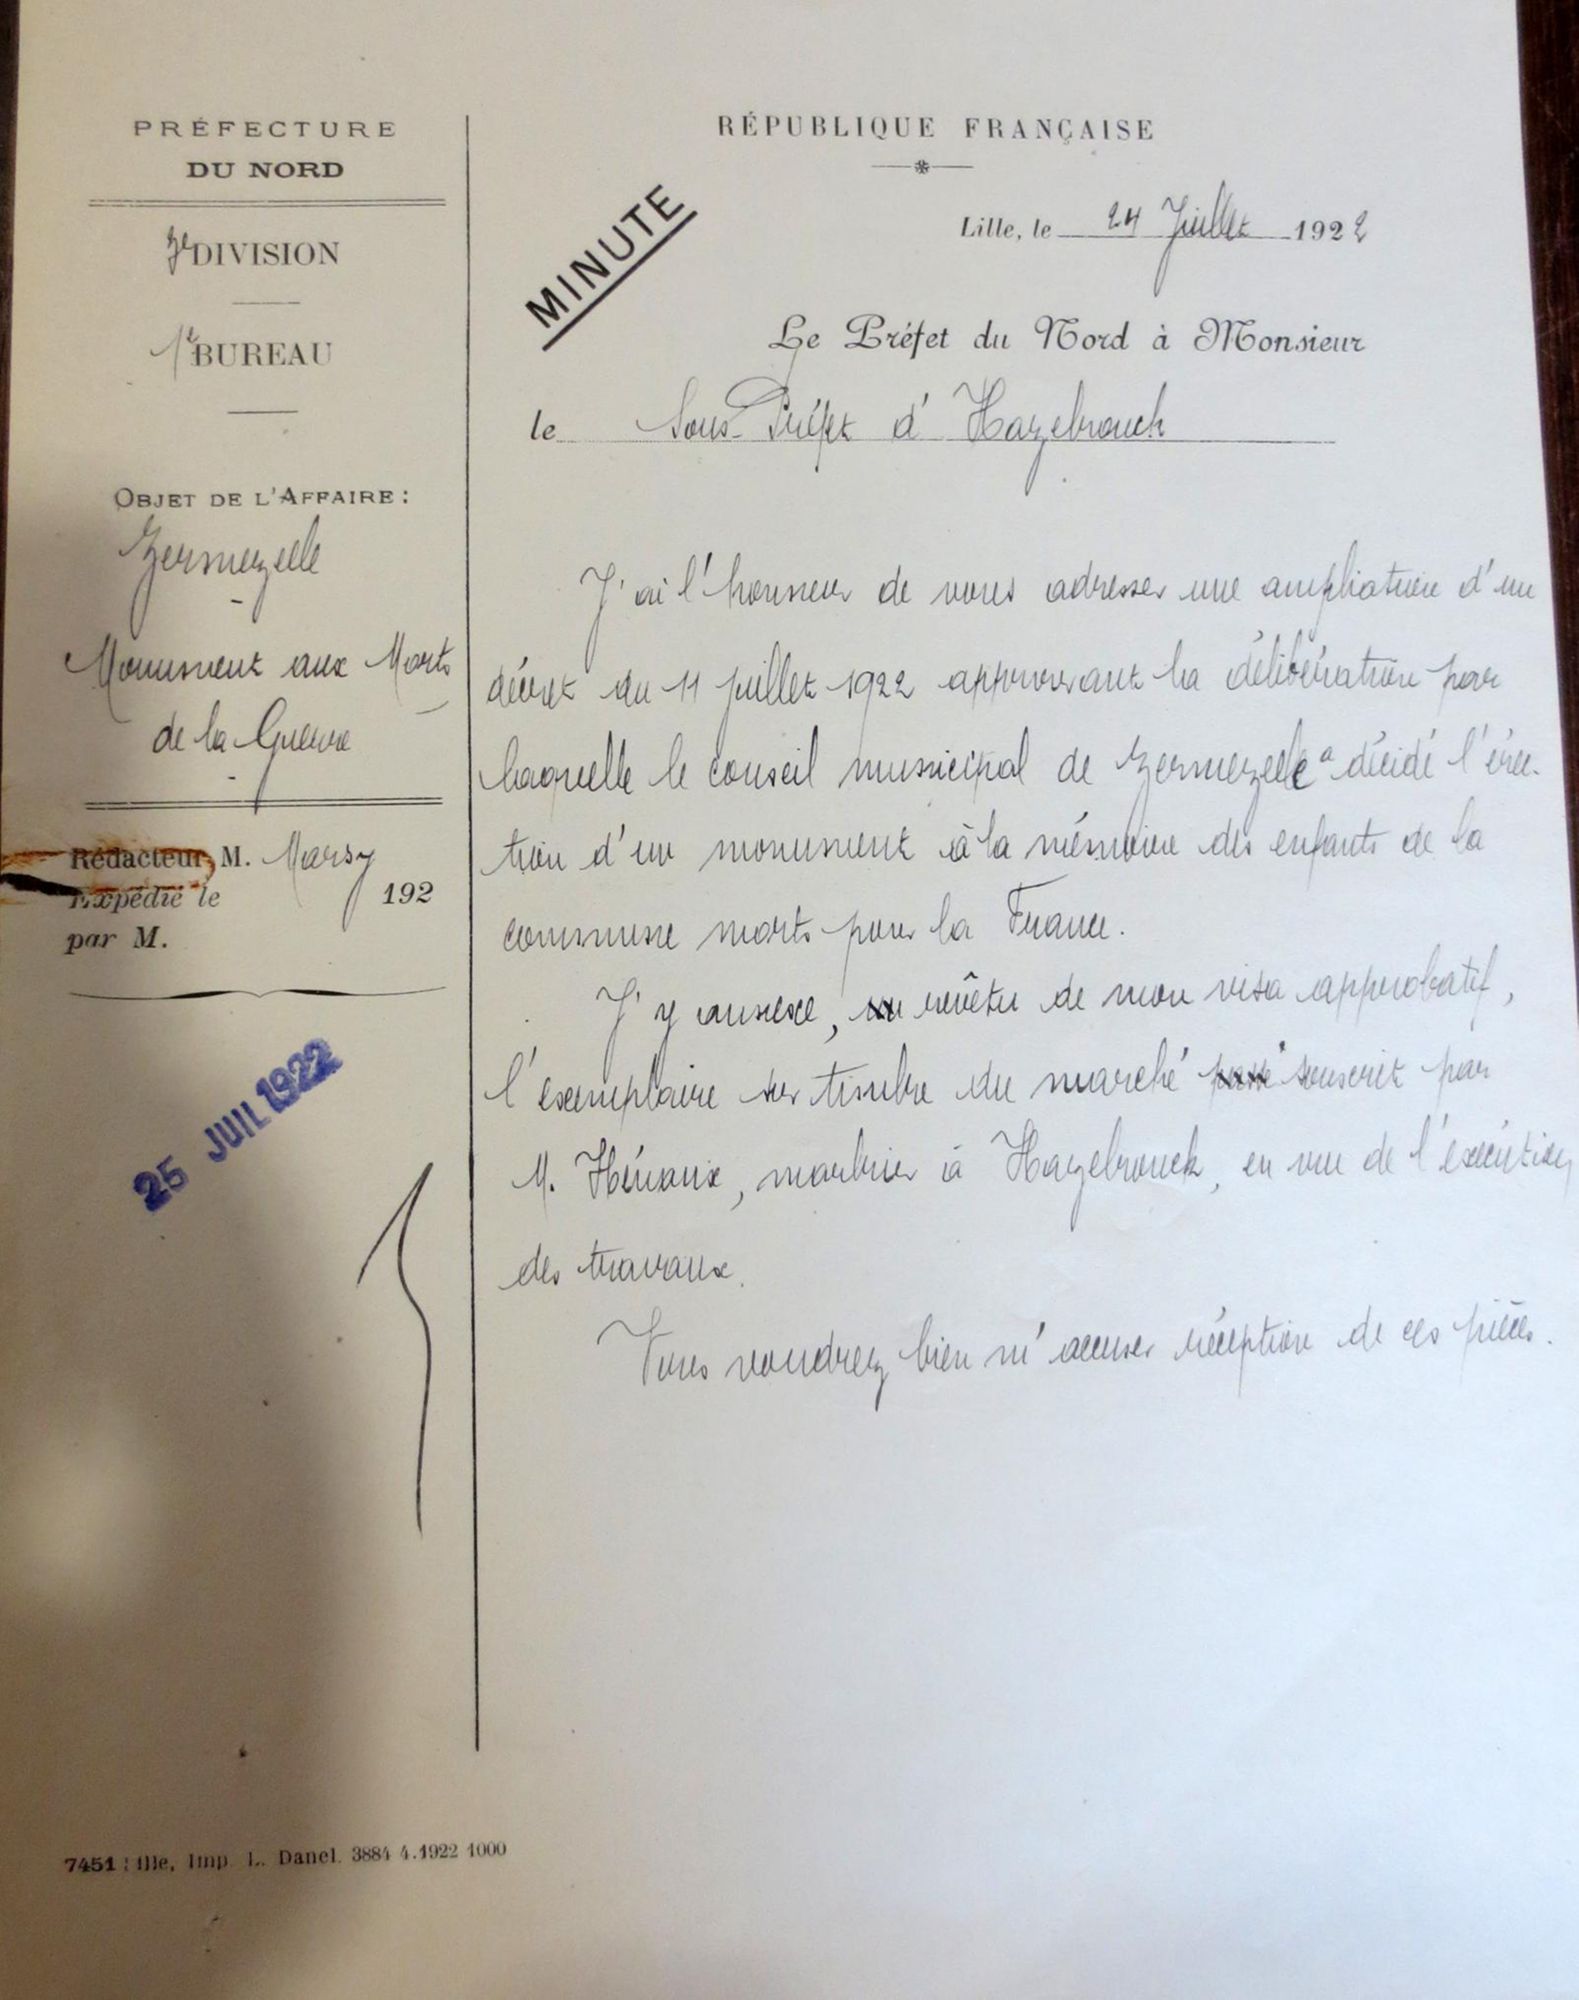 PRÉFECTURE
DU NORD
3e DIVISION
1er BUREAU
OBJET DE L'AFFAIRE :
Zermezeele
Monument aux Morts
de la Guerre
Rédacteur, M. Marsy
Expédié le 192
par M.
25 JUIL 1922
7451 : Lille, Imp. L. Danel. 3884 4.1922 1000
RÉPUBLIQUE FRANÇAISE
MINUTE
Lille, le 24 Juillet 1922
Le Préfet du Nord à Monsieur
le Sous-Préfet d'Hazebrouck
J'ai l'honneur de vous adresser une ampliation d'un
décret du 11 juillet 1922 approuvant la délibération par
laquelle le conseil municipal de Zermezeele a décidé l'érec-
tion d'un monument à la mémoire des enfants de la
commune morts pour la France.
J'y annexe, revêtu de mon visa approbatif,
l'exemplaire sur timbre du marché passé souscrit par
M. Hénaux, marbrier à Hazebrouck, en vue de l'exécution
des travaux.
Vous voudrez bien m'accuser réception de ces pièces.